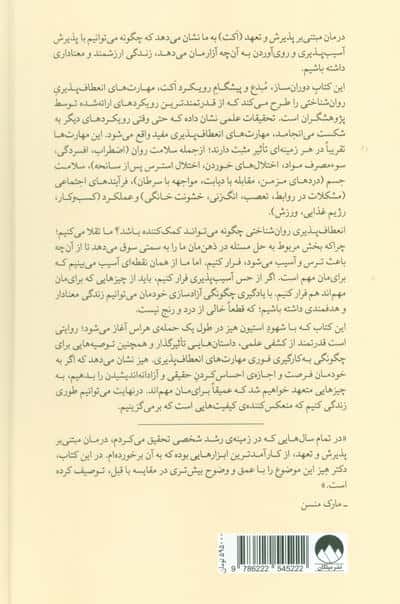 درمان مبتنی‌بر پذیرش و تعهد (اَکت) به ما نشان می‌دهد که چگونه می‌توانیم با پذیرش
آسیب‌پذیری و روی‌آوردن به آن‌چه آزارمان می‌دهد، زندگی ارزشمند و معناداری
داشته باشیم.
این کتابِ دوران‌ساز، مُبْدِع و پیشگامِ رویکردِ اَکت، مهارت‌های انعطاف‌پذیریِ
روان‌شناختی را طرح می‌کند که از قدرتمندترین رویکردهای ارائه‌شده توسط
پژوهشگران است. تحقیقات علمی نشان داده که حتی وقتی رویکردهای دیگر به
شکست می‌انجامد، مهارت‌های انعطاف‌پذیری مفید واقع می‌شود. این مهارت‌ها
تقریباً در هر زمینه‌ای تأثیر مثبت دارند؛ ازجمله سلامت روان (اضطراب، افسردگی،
سوءمصرف مواد، اختلال‌های خوردن، اختلال استرس پس از سانحه)، سلامت
جسم (دردهای مزمن، مقابله با دیابت، مواجهه با سرطان)، فرآیندهای اجتماعی
(مشکلات در روابط، تعصب، انگ‌زنی، خشونت خانگی) و عملکرد (کسب‌وکار،
رژیم غذایی، ورزش).
انعطاف‌پذیری روان‌شناختی چگونه می‌تواند کمک‌کننده باشد؟ ما تقلا می‌کنیم؛
چراکه بخش مربوط به حل مسئله در ذهن‌مان ما را به سمتی سوق می‌دهد تا از آن‌چه
باعث ترس و آسیب می‌شود، فرار کنیم. اما از همان نقطه‌ای آسیب می‌بینیم که
برای‌مان مهم است. اگر از حس آسیب‌پذیری فرار کنیم، باید از چیزهایی که برای‌مان
مهم‌اند هم فرار کنیم. با یادگیری چگونگی آزادسازی خودمان می‌توانیم زندگی معنادار
و هدفمندی داشته باشیم؛ که قطعاً خالی از درد و رنج نیست.
این کتاب که با شهودِ استیون هیز در طول یک حمله‌ی هراس آغاز می‌شود؛ روایتی
است قدرتمند از کشفی علمی، داستان‌هایی تأثیرگذار و همچنین توصیه‌هایی برای
چگونگی به‌کارگیری فوری مهارت‌های انعطاف‌پذیری. هیز نشان می‌دهد که اگر به
خودمان فرصت و اجازه‌ی احساس‌کردنِ حقیقی و آزادانه‌اندیشیدن را بدهیم، به
چیزهایی متعهد خواهیم شد که عمیقاً برای‌مان مهم‌اند. درنهایت می‌توانیم طوری
زندگی کنیم که منعکس‌کننده‌ی کیفیت‌هایی است که برمی‌گزینیم.
«در تمام سال‌هایی که در زمینه‌ی رشد شخصی تحقیق می‌کردم، درمان مبتنی‌بر
پذیرش و تعهد، از کارآمدترین ابزارهایی بوده که به آن برخورده‌ام. در این کتاب،
دکتر هیز این موضوع را با عمق و وضوح بیش‌تری در مقایسه با قبل، توصیف کرده
است.»
ـ مارک منسن
۵۹۵۰۰۰ تومان
9 786222 545222
نشر میلکان